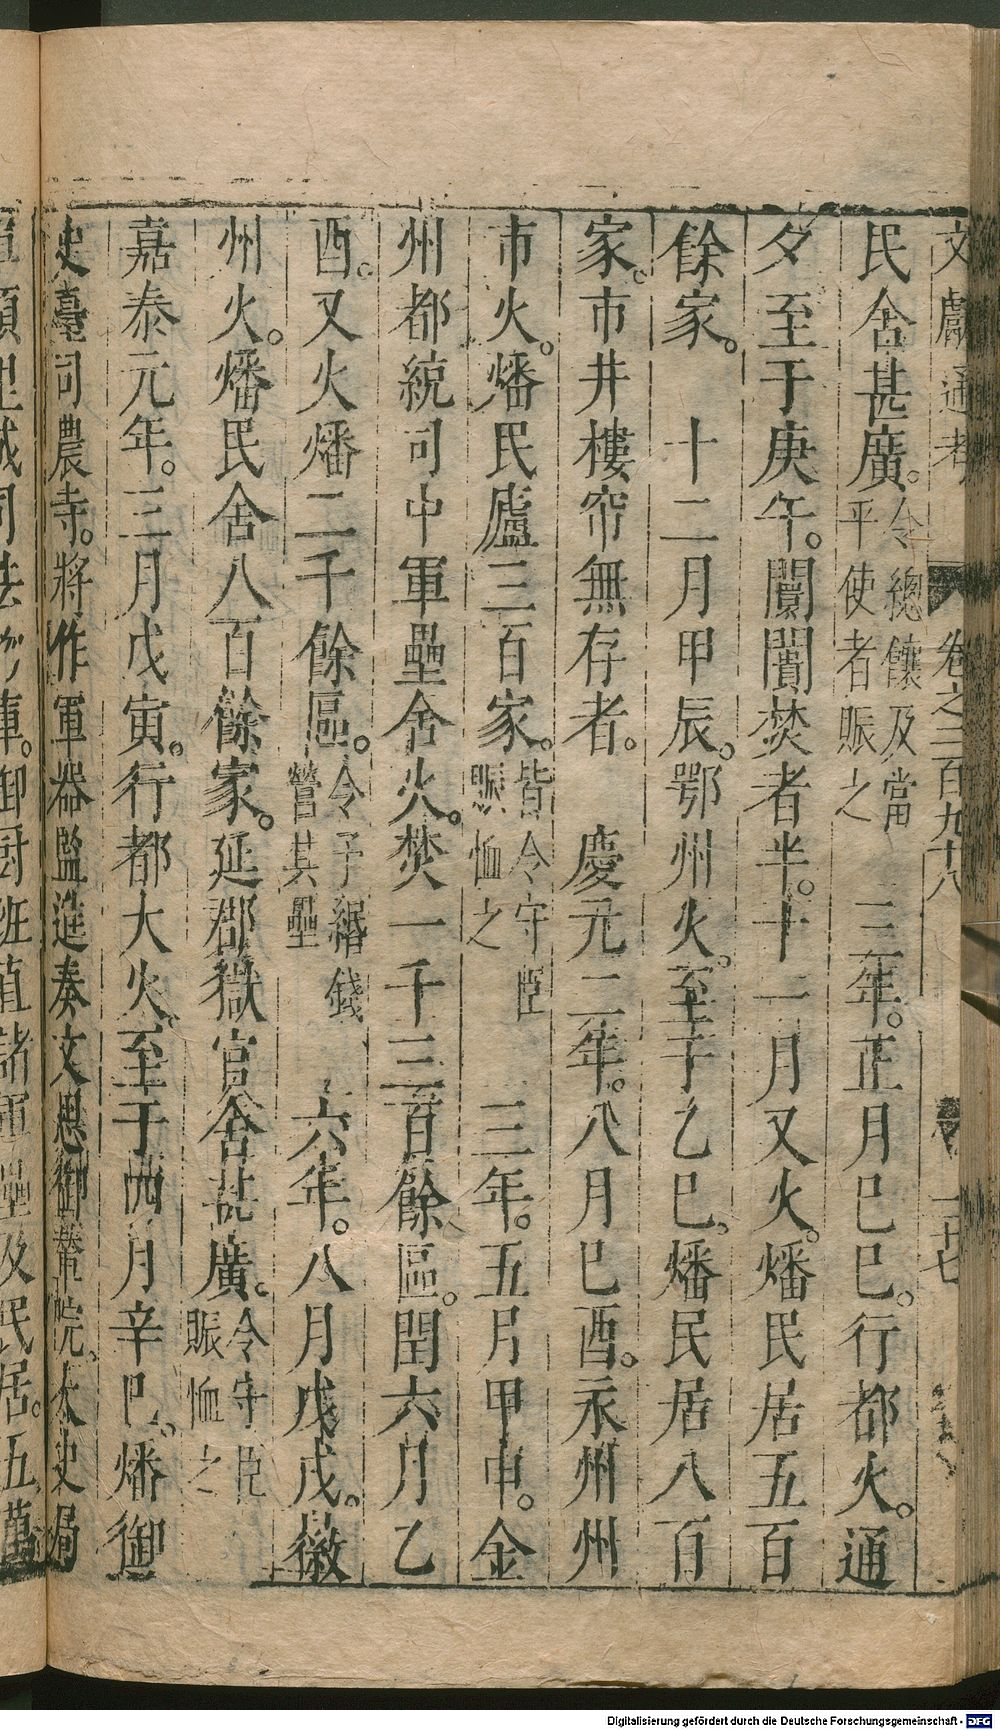 文獻通考 卷之三百九十八 二十七
民舍甚廣。令總饟及當平使者賑之 三年。正月己巳。行都火。通
夕至于庚午。闤闠焚者半。十一月又火。燔民居五百
餘家。 十二月甲辰。鄂州火。至于乙巳。燔民居八百
家。市井樓帘無存者。 慶元二年。八月己酉。永州州
市火。燔民廬三百家。皆令守臣賑恤之 三年。五月甲申。金
州都統司中軍壘舍火。焚一千三百餘區。閏六月乙
酉。又火燔二千餘區。令予緡錢營其壘 六年。八月戊戌。徽
州火。燔民舍八百餘家。延郡獄官舍甚廣。令守臣賑恤之
嘉泰元年。三月戊寅。行都大火。至于四月辛巳。燔御
史臺司農寺。將作軍器監進奏文思御輦院、太史局
居。五萬
Digitalisierung gefördert durch die Deutsche Forschungsgemeinschaft - DFG